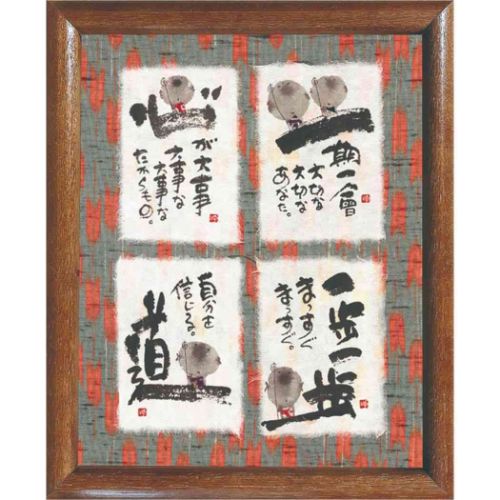 一期一會
大切な
大切な
あなた。
心が大事
大事な
大事な
たからもの。
一歩一歩
まっすぐ
まっすぐ。
自分を
信じる。
道